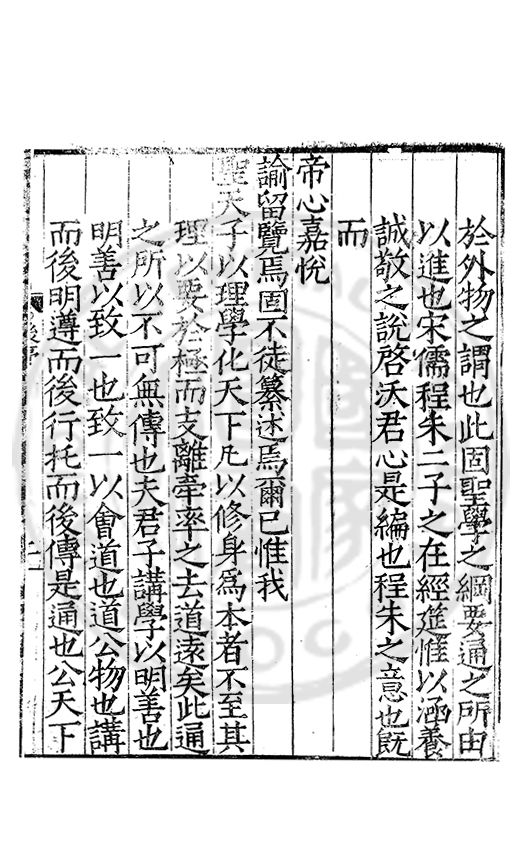 於外物之謂也此固聖學之綱要通之所由
以進也宋儒程朱二子之在經筵惟以涵養
誠敬之說啓沃君心是編也程朱之意也旣
而
帝心嘉悅
諭留覽焉固不徒纂述焉爾已惟我
聖天子以理學化天下凡以修身爲本者不至其
理以要於極而支離牽率之去道遠矣此通
之所以不可無傳也夫君子講學以明善也
明善以致一也致一以會道也道公物也講
而後明遵而後行托而後傳是通也公天下
後序